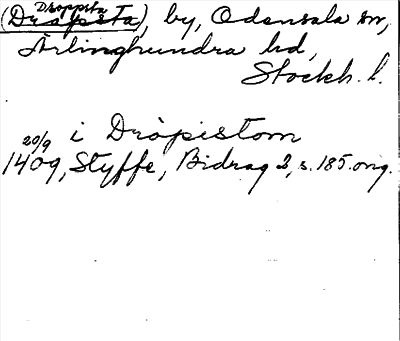 Droppsta
(Dråpsta), by, Odensala sn,
Ärlinghundra hd,
Stockh. l.
i Dråpistom
20/9 1409, Styffe, Bidrag 2, s. 185. orig.